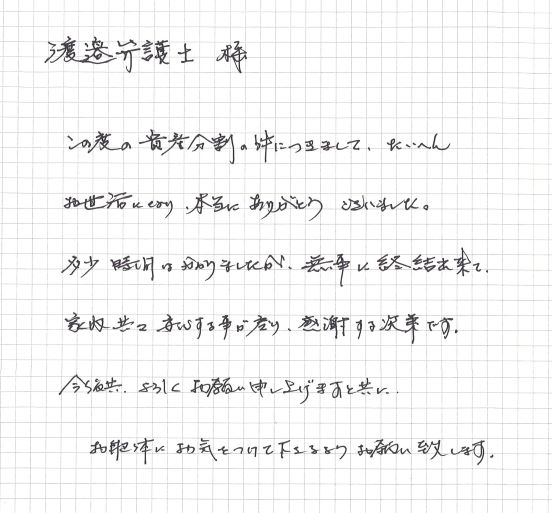 渡邉弁護士 様
この度の資産分割の件につきまして、たいへん
お世話になり、本当にありがとうございました。
多少時間はかかりましたが、無事に終結出来て、
家内共々安心する事が出来、感謝する次第です。
今後共、よろしくお願い申し上げますと共に、
お身体にお気をつけて下さるようお願い致します。